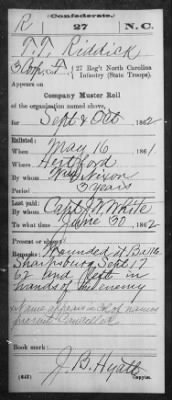 (Confederate.)
R 27 N.C.
T. T. Riddick
27 Reg't North Carolina
Infantry (State Troops).
Appears on
Company Muster Roll
of the organization named above,
for Sept & Oct, 1862
Enlisted:
When May 16, 1861
Where Hertford
By whom Nixon
Period 3 years
Last paid:
By whom Capt J. W. White
To what time June 30, 1862
Present or absent
Remarks: Wounded at Battle
Sharpsburg Sept 17
62 and left in
hands of the enemy
Name appears in col of names
present Cancelled
Book mark:
J. B. Hyatt
(642) Copyist.